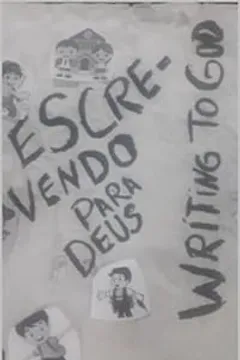 ESCRE-
VENDO
PARA
DEUS
WRITING TO GOD